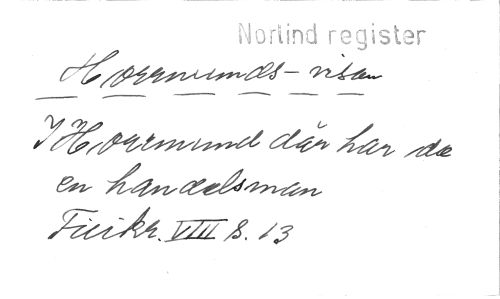 Norlind register
Horrmunds-visan
I Horrmund där har de
en handelsman
Fiiikr. VIII s. 13